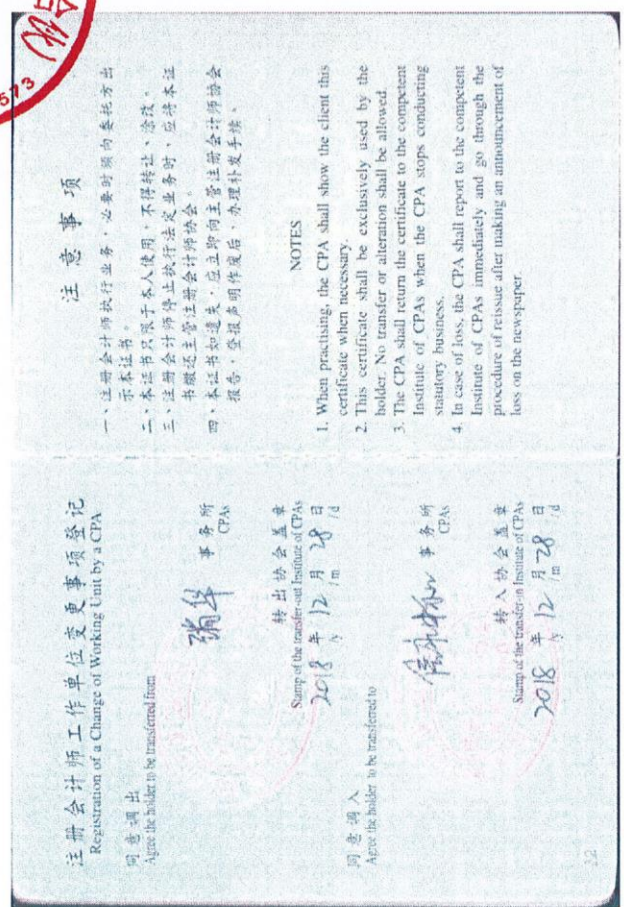 注册会计师工作单位变更事项登记
Registration of a Change of Working Unit by a CPA
同意调出
Agree the holder to be transferred from
瑞华 事务所
CPAs
转出协会盖章
Stamp of the transfer-out Institute of CPAs
2018 年 12 月 28 日
/y /m /d
同意调入
Agree the holder to be transferred to
信永中和 事务所
CPAs
转入协会盖章
Stamp of the transfer-in Institute of CPAs
2018 年 12 月 28 日
/y /m /d
12
注意事项
一、注册会计师执行业务，必要时须向委托方出
示本证书。
二、本证书只限于本人使用，不得转让、涂改。
三、注册会计师停止执行法定业务时，应将本证
书缴还主管注册会计师协会。
四、本证书如遗失，应立即向主管注册会计师协会
报告，登报声明作废后，办理补发手续。
NOTES
1. When practising, the CPA shall show the client this
certificate when necessary.
2. This certificate shall be exclusively used by the
holder. No transfer or alteration shall be allowed.
3. The CPA shall return the certificate to the competent
Institute of CPAs when the CPA stops conducting
statutory business.
4. In case of loss, the CPA shall report to the competent
Institute of CPAs immediately and go through the
procedure of reissue after making an announcement of
loss on the newspaper.
573